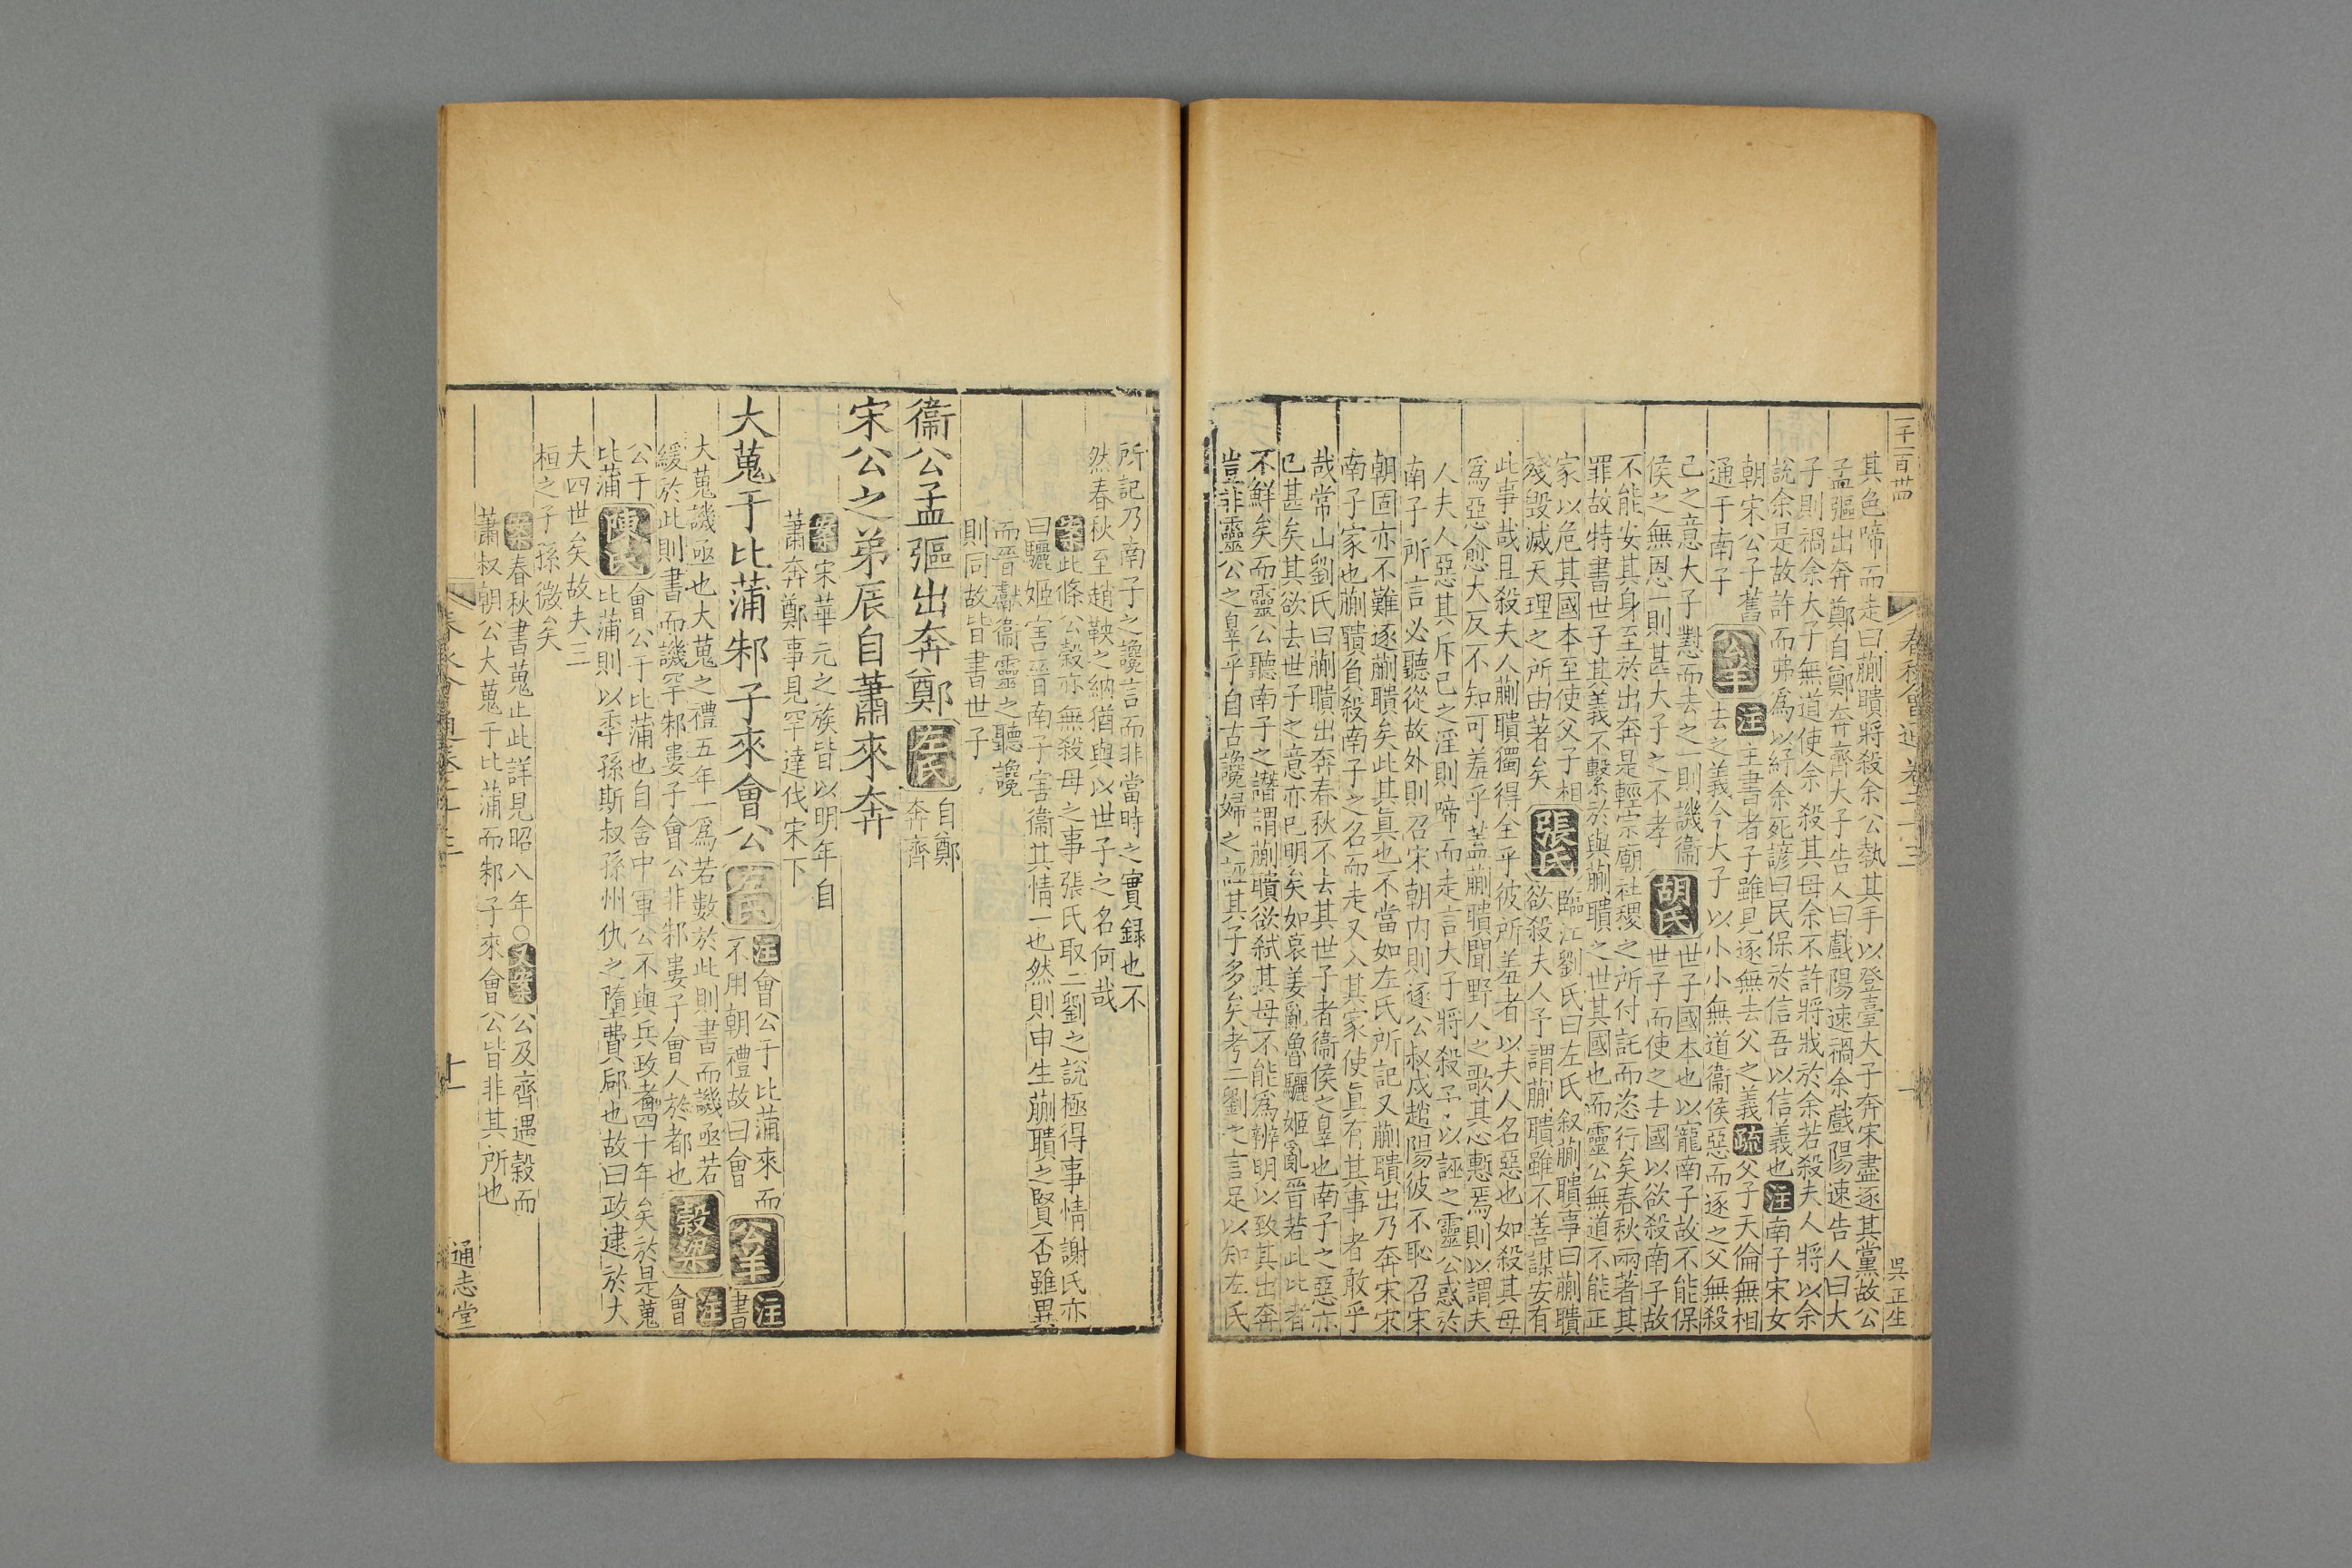 其色啼而走曰蒯聵將殺余公執其手以登臺大子奔宋盡逐其黨故公
孟彄出奔鄭自鄭奔齊大子告人曰戲陽速禍余戲陽速告人曰大
子則禍余大子無道使余殺其母余不許將戕於余若殺夫人將以余
說余是故許而弗爲以紓余死諺曰民保於信吾以信義也注南子宋女
朝宋公子舊
通于南子
公羊
注主書者子雖見逐無去父之義疏父子天倫無相
去之義今大子以小小無道衞侯惡而逐之父無殺
己之意大子懟而去之一則譏衞
侯之無恩一則甚大子之不孝
胡氏
世子國本也以寵南子故不能保
世子而使之去國以欲殺南子故
不能安其身至於出奔是輕宗廟社稷之所付託而恣行矣春秋兩著其
罪故特書世子其義不繫於與蒯聵之世其國也而靈公無道不能正
家以危其國本至使父子相
殘毀滅天理之所由著矣
張氏
臨江劉氏曰左氏叙蒯聵事曰蒯聵
欲殺夫人予謂蒯聵雖不善謀安有
此事哉且殺夫人蒯聵獨得全乎彼所羞者以夫人名惡也如殺其母
爲惡愈大反不知可羞乎蓋蒯聵聞野人之歌其心慙焉則以謂夫
人夫人惡其斥己之淫則啼而走言大子將殺予以誣之靈公惑於
南子所言必聽從故外則召宋朝内則逐公叔戍趙陽彼不恥召宋
朝固亦不難逐蒯聵矣此其真也不當如左氏所記又蒯聵出乃奔宋宋
南子家也蒯聵負殺南子之名而走又入其家使真有其事者敢乎
哉常山劉氏曰蒯聵出奔春秋不去其世子者衞侯之辠也南子之惡亦
已甚矣其欲去世子之意亦已明矣如哀姜亂魯驪姬亂晉若此比者
不鮮矣而靈公聽南子之譖謂蒯聵欲弑其母不能爲辨明以致其出奔
豈非靈公之辠乎自古讒婦之誣其子多矣考二劉之言足以知左氏
吳正生
所記乃南子之讒言而非當時之實録也不
然春秋至趙鞅之納猶與以世子之名何哉
案此條公穀亦無殺母之事張氏取二劉之說極得事情謝氏亦
曰驪姬害晉南子害衞其情一也然則申生蒯聵之賢否雖異
而晉獻衞靈之聽讒
則同故皆書世子
衞公孟彄出奔鄭
左氏
自鄭
奔齊
宋公之弟辰自蕭來奔
案宋華元之族皆以明年自
蕭奔鄭事見罕達伐宋下
大蒐于比蒲邾子來會公
左氏
注會公于比蒲來而
不用朝禮故曰會
公羊
注書
大蒐譏亟也大蒐之禮五年一爲若數於此則書而譏亟若
緩於此則書而譏罕邾婁子會公非邾婁子會人於都也
穀梁
注會
公于
比蒲
陳氏
會公于比蒲也自舍中軍公不與兵政者四十年矣於是蒐
比蒲則以季孫斯叔孫州仇之墮費郈也故曰政逮於大
夫四世矣故夫三
桓之子孫微矣
案春秋書蒐止此詳見昭八年○又案公及齊遇穀而
蕭叔朝公大蒐于比蒲而邾子來會公皆非其所也
十一
通志堂